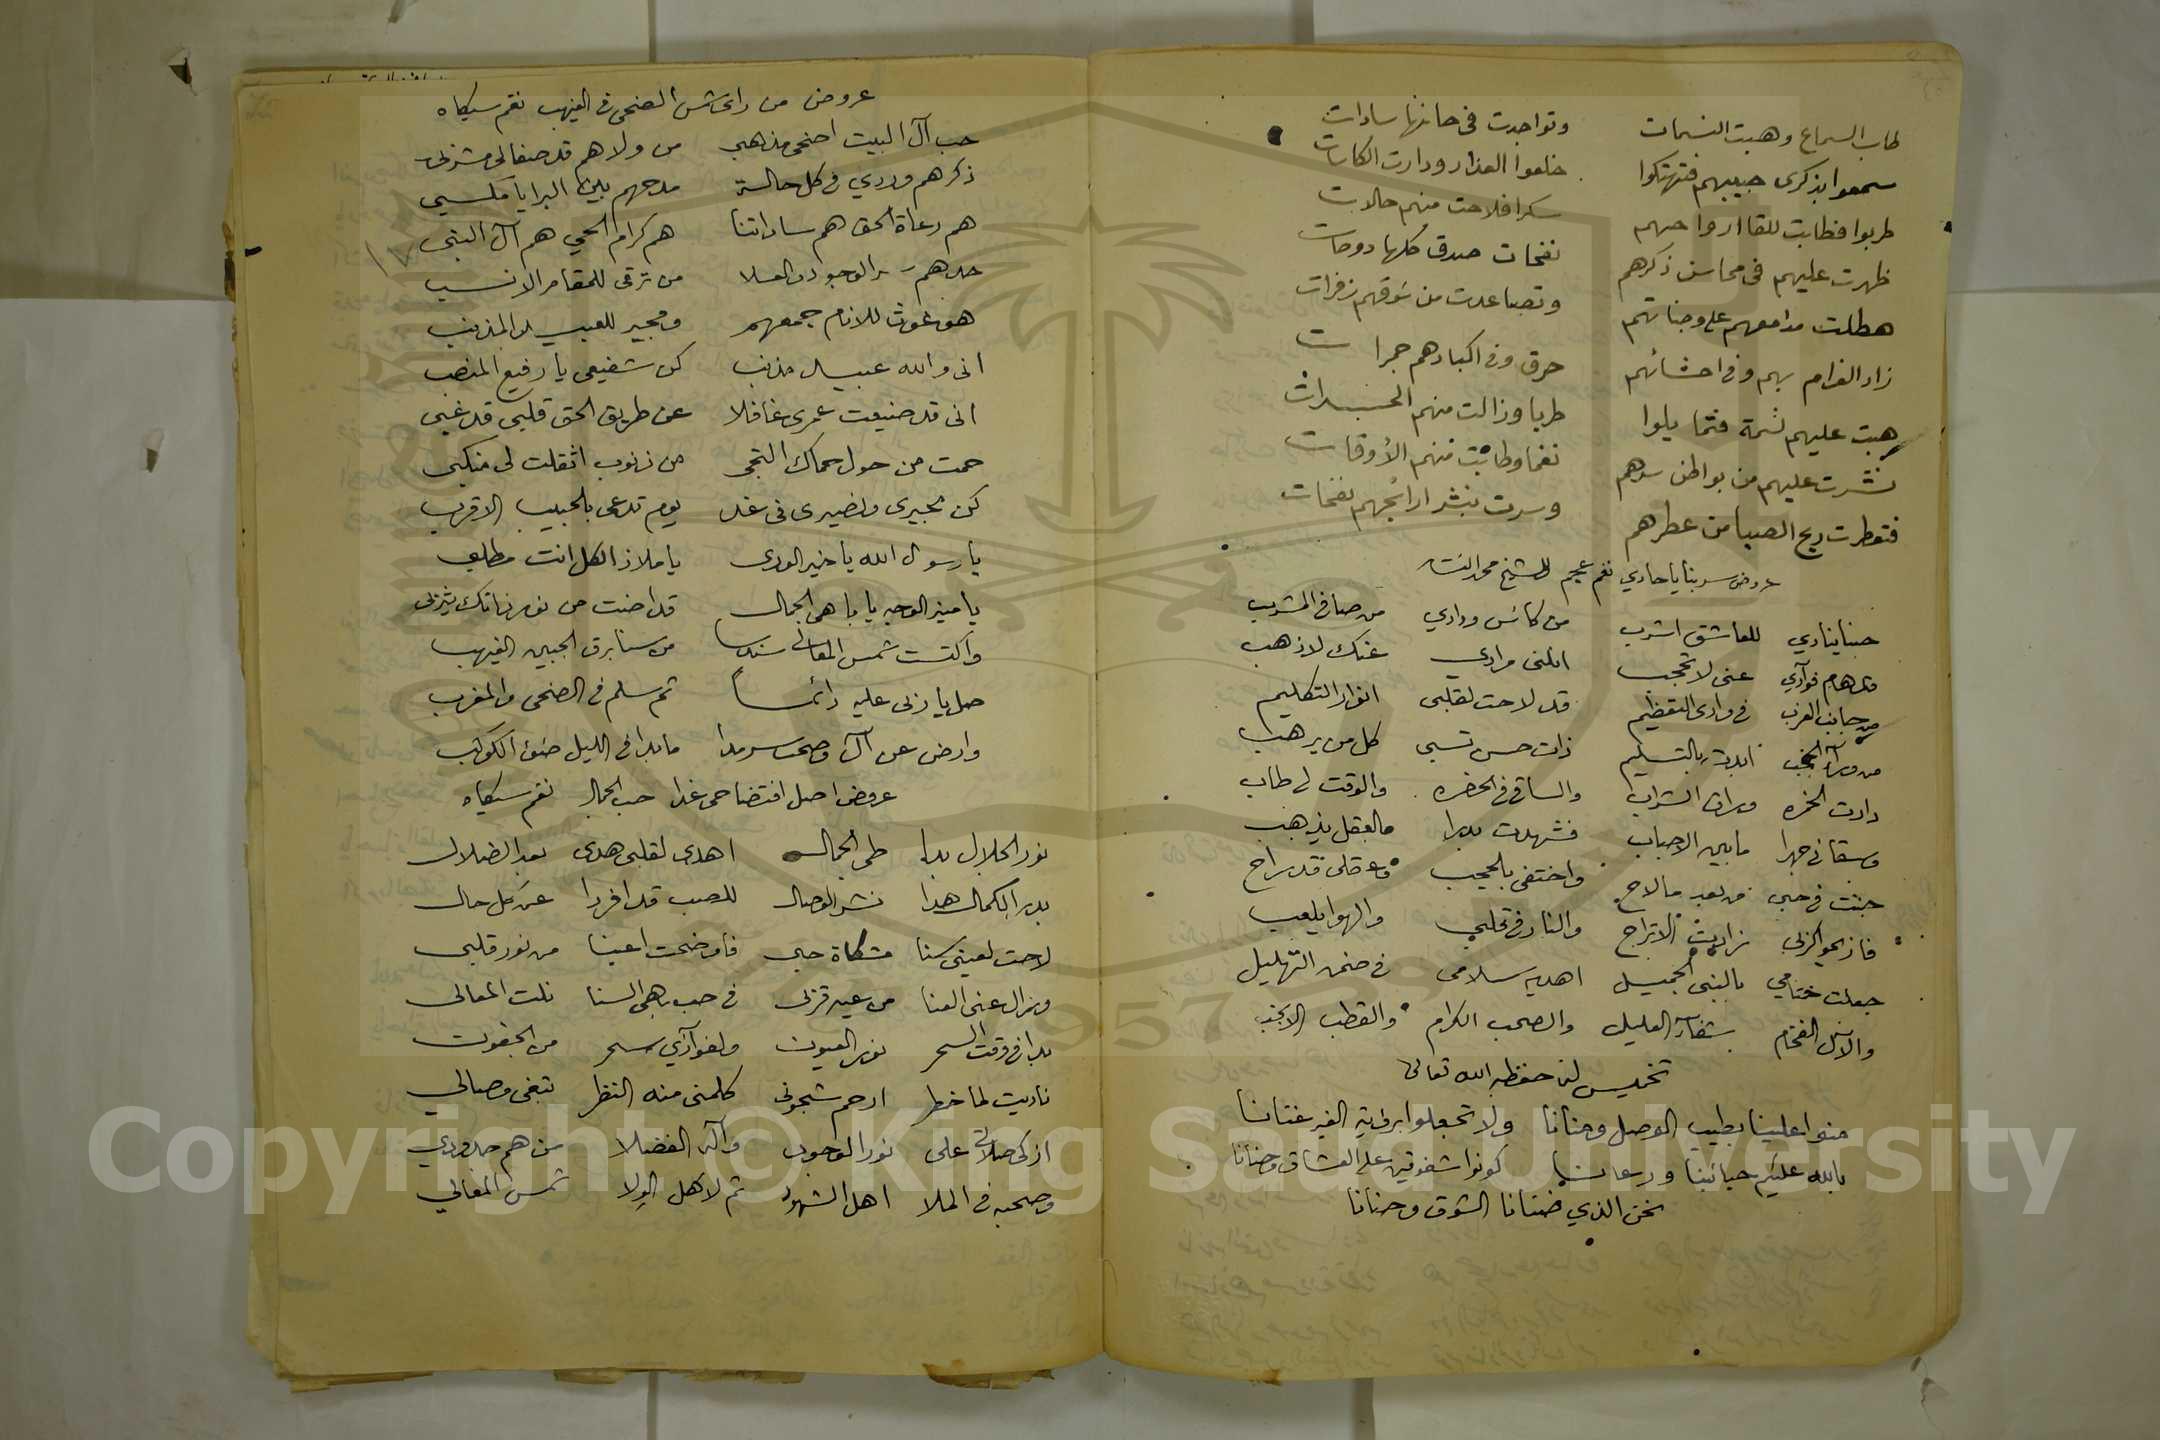 طاب السماع وهبت النسمات وتواجدت في حانها سادات
سمعوا بذكرى حبيبهم فتهتكوا خلعوا العذار ودارت الكاسات
طربوا فطابت للقا ارواحهم سكرا فلاحت منهم حالات
ظهرت عليهم في محاسن ذكرهم نفحات صدق كلها دوحات
هطلت مدامعهم على وجناتهم وتصاعدت من شوقهم زفرات
زاد الغرام بهم وفي احشائهم حرق وفي اكبادهم جمرات
هبت عليهم نسمة فتمايلوا طربا وزالت منهم الحسرات
نشرت عليهم من بواطن سرهم نغما وطابت منهم الأوقات
فتعطرت ريح الصبا من عطرهم وسرت بنشر ارائجهم نفحات
عروض سر بنا يا حادي نغم عجم للشيخ محمد
حبنا ينادي للعاشق اشرب من كاس ودادي من صافي المشرب
قد هام فوآدي عني لا تحجب انلني مرادي عنك لا ذهب
من جانب الغرب في وادي التعظيم قد لاحت لقلبي انوار التكليم
من ورآء الحجب بالتسليم ذات حسن تسبي كل من يرهب
دارت الخمره وراق الشراب والساقي في الحضره والوقت لي طاب
وسقاني جهرا ما بين الاحباب فشهدت بدرا بالعقل يذهب
جننت في حبي من بعد ما لاح واختفى بالحجب وعقلي قد راح
زادت الاتراح والنار في قلبي والهوا يلعب
جعلت ختامي بالنبي الجميل اهديه سلامي في ضمن التهليل
والآل الفخام شفآء العليل والصحب الكرام والقطب الانجب
تخميس لنـ حفظه الله تعالى
منوا علينا بطيب الوصل وحنانا ولا تجعلوا برؤية الغير فتانا
بالله عليكم حبائبنا ورعا كونوا شفوقين على العشاق وحنانا
نحن الذي ضنانا الشوق وحنانا
عروض من راى شمس الضحى في الغيهب نغم سيكاه
حب آل البيت اضحى مذهبي من ولاهم قد صفا لي مشربي
ذكرهم وردي في كل حالة مدحهم بين البرايا مكسبي
هم رعاة الحق هم ساداتنا هم كرام الحي هم آل النبي
١٧
جدهم سر الوجود والعلا من ترقى للمقام الانسب
هو غوث للانام جميعهم ومجير للعبيد المذنب
اني والله عبيد مذنب كن شفيعي يا رفيع المنصب
اني قد ضيعت عمري غافلا عن طريق الحق قلبي قد غبي
حمت من حول حماك التجي من ذنوب اثقلت لي منكبي
كن مجيري ونصيري في غد يوم تدعى بالحبيب الاقرب
يا رسول الله يا خير الورى يا ملاذ الكل انت مطلبي
يا منير الوجه يا باهي الجمال قد اضئت من نور ذاتك يثربي
واكتست شمس المعالي سندسا من سنا برق الجبين الغيهب
صل يا ربي عليه دائمًا ثم سلم في الضحى والمغرب
وارض عن آل وصحب سرمدا ما بدا في الليل ضوء الكوكب
عروض اصل افتضاحي غدا حب الجمال نغم سيكاه
نور الجلال بدا طي الجمال اهدى لقلبي هدى بعد الضلال
بدر الكمال هدا نشر الوصال للصب قد افردا عن كل حال
لاحت لعيني سنا مشكاة حبي فاوضحت اعينا من نور قلبي
وزال عني العنا من عين قربي في حب باهي السنا نلت المعالي
بدا في وقت السحر نور العيون ولفوآدي سحر من الجفون
ناديت لما خطر ارحم شجوني كلمني منه النظر تبغي وصالي
ازكى صلاتي على نور الوجود وآله الفضلا من هم حدودي
وصحبه في الملا اهل الشهود ثم لاهل الولا شمس المعالي